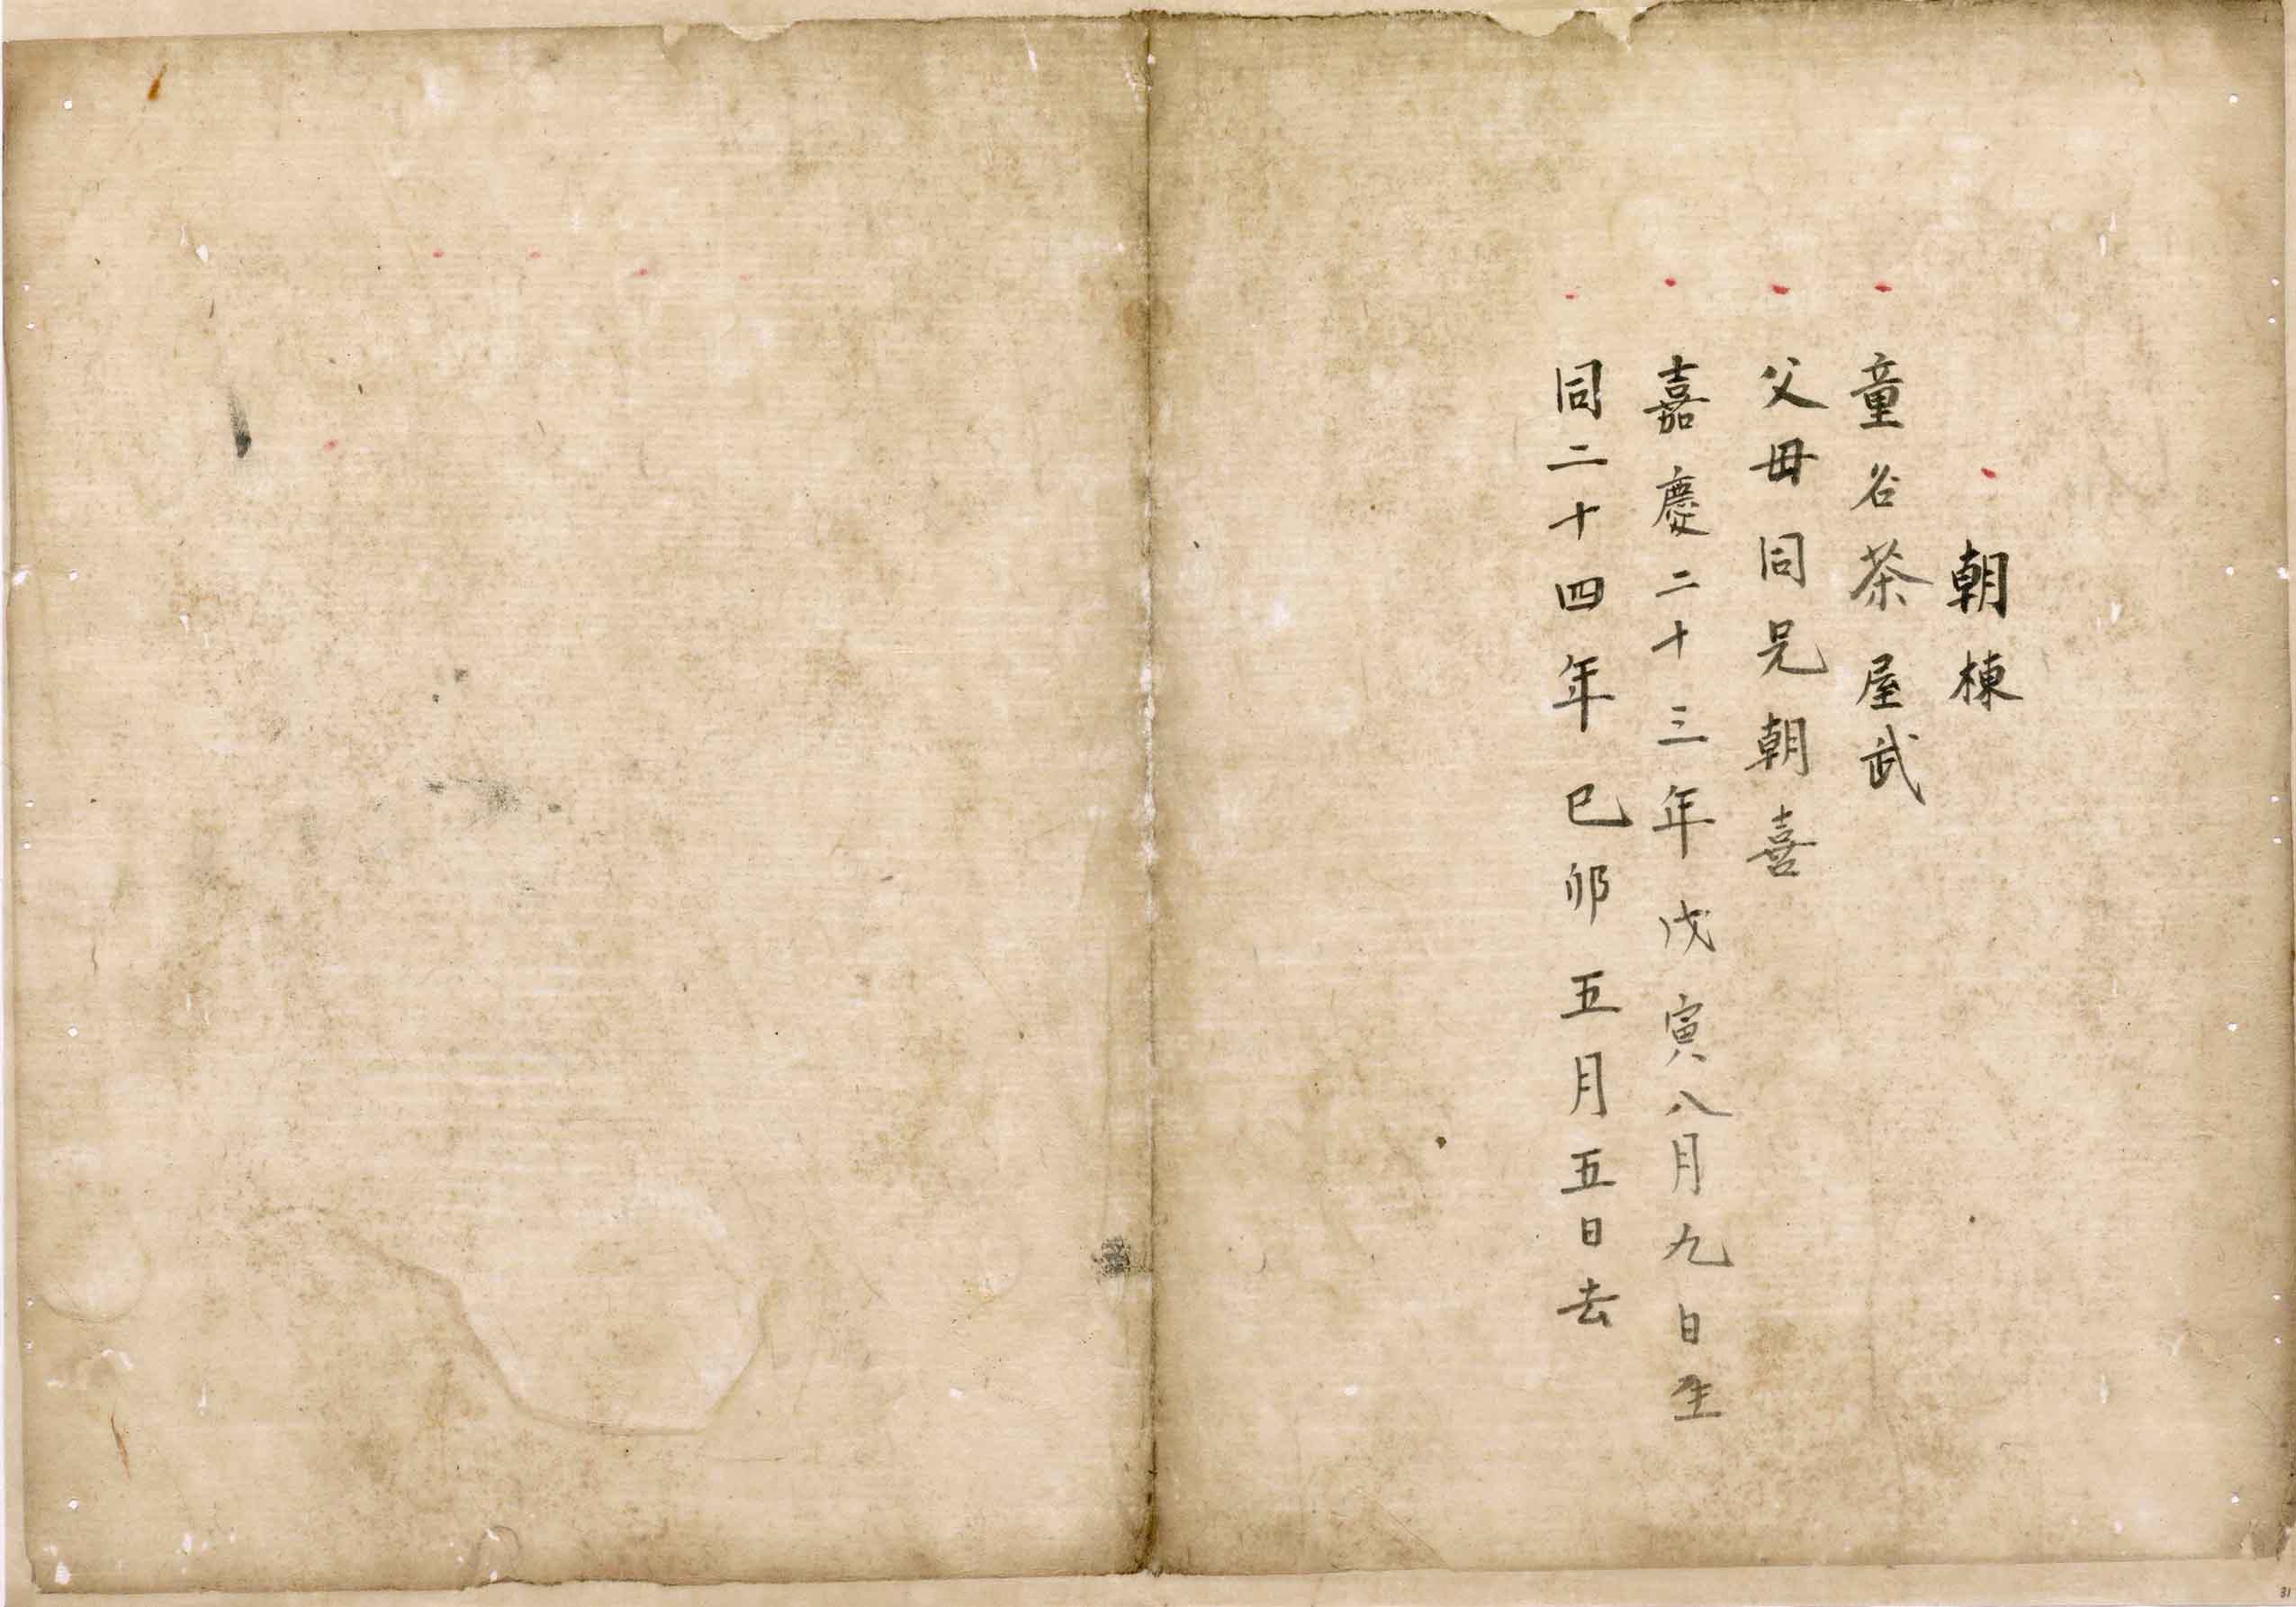 朝棟
童名茶屋武
父毋同兄朝喜
嘉慶二十三年戊寅八月九日生
同二十四年己卯五月五日去
31